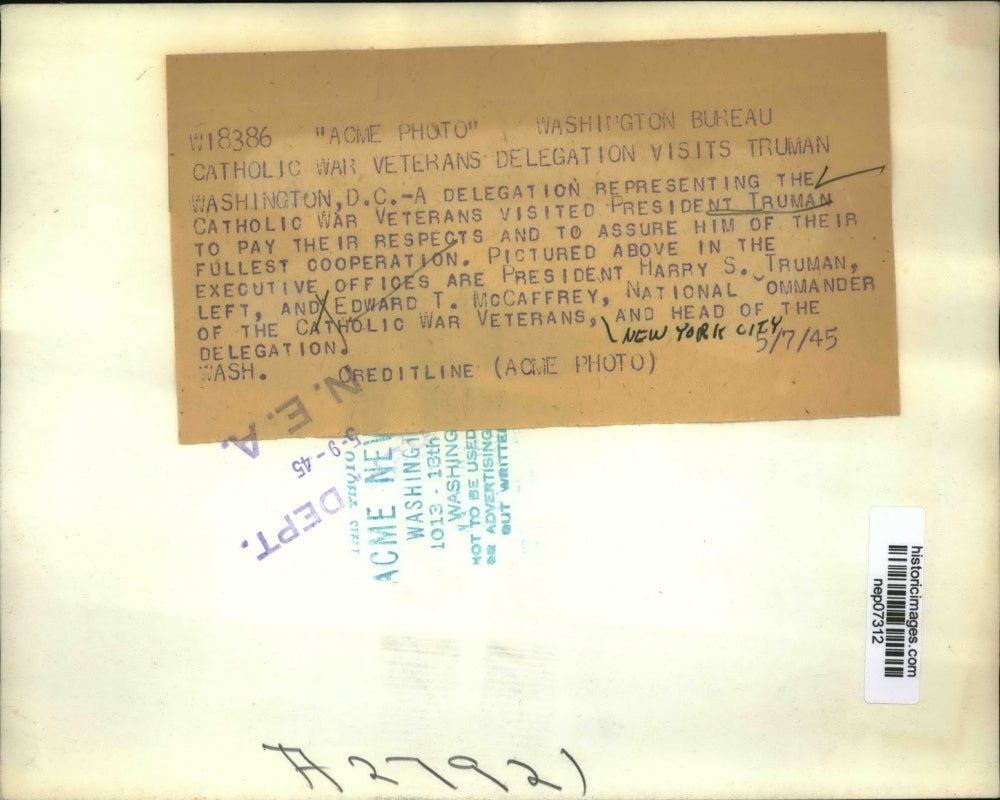 W18386 "ACME PHOTO" WASHINGTON BUREAU
CATHOLIC WAR VETERANS DELEGATION VISITS TRUMAN
WASHINGTON, D.C.-A DELEGATION REPRESENTING THE
CATHOLIC WAR VETERANS VISITED PRESIDENT TRUMAN
TO PAY THEIR RESPECTS AND TO ASSURE HIM OF THEIR
FULLEST COOPERATION. PICTURED ABOVE IN THE
EXECUTIVE OFFICES ARE PRESIDENT HARRY S. TRUMAN,
LEFT, AND EDWARD T. McCAFFREY, NATIONAL OMMANDER
OF THE CATHOLIC WAR VETERANS, AND HEAD OF THE
NEW YORK CITY
DELEGATION.
5/7/45
WASH. CREDITLINE (ACME PHOTO)
N.E.A.
5-9-45
DEPT.
ACME NEW
WASHINGT
1013 - 13th
WASHING
NOT TO BE USED
OR ADVERTISING
OUT WRITTEN
historicimages.com
nep07312
#2792